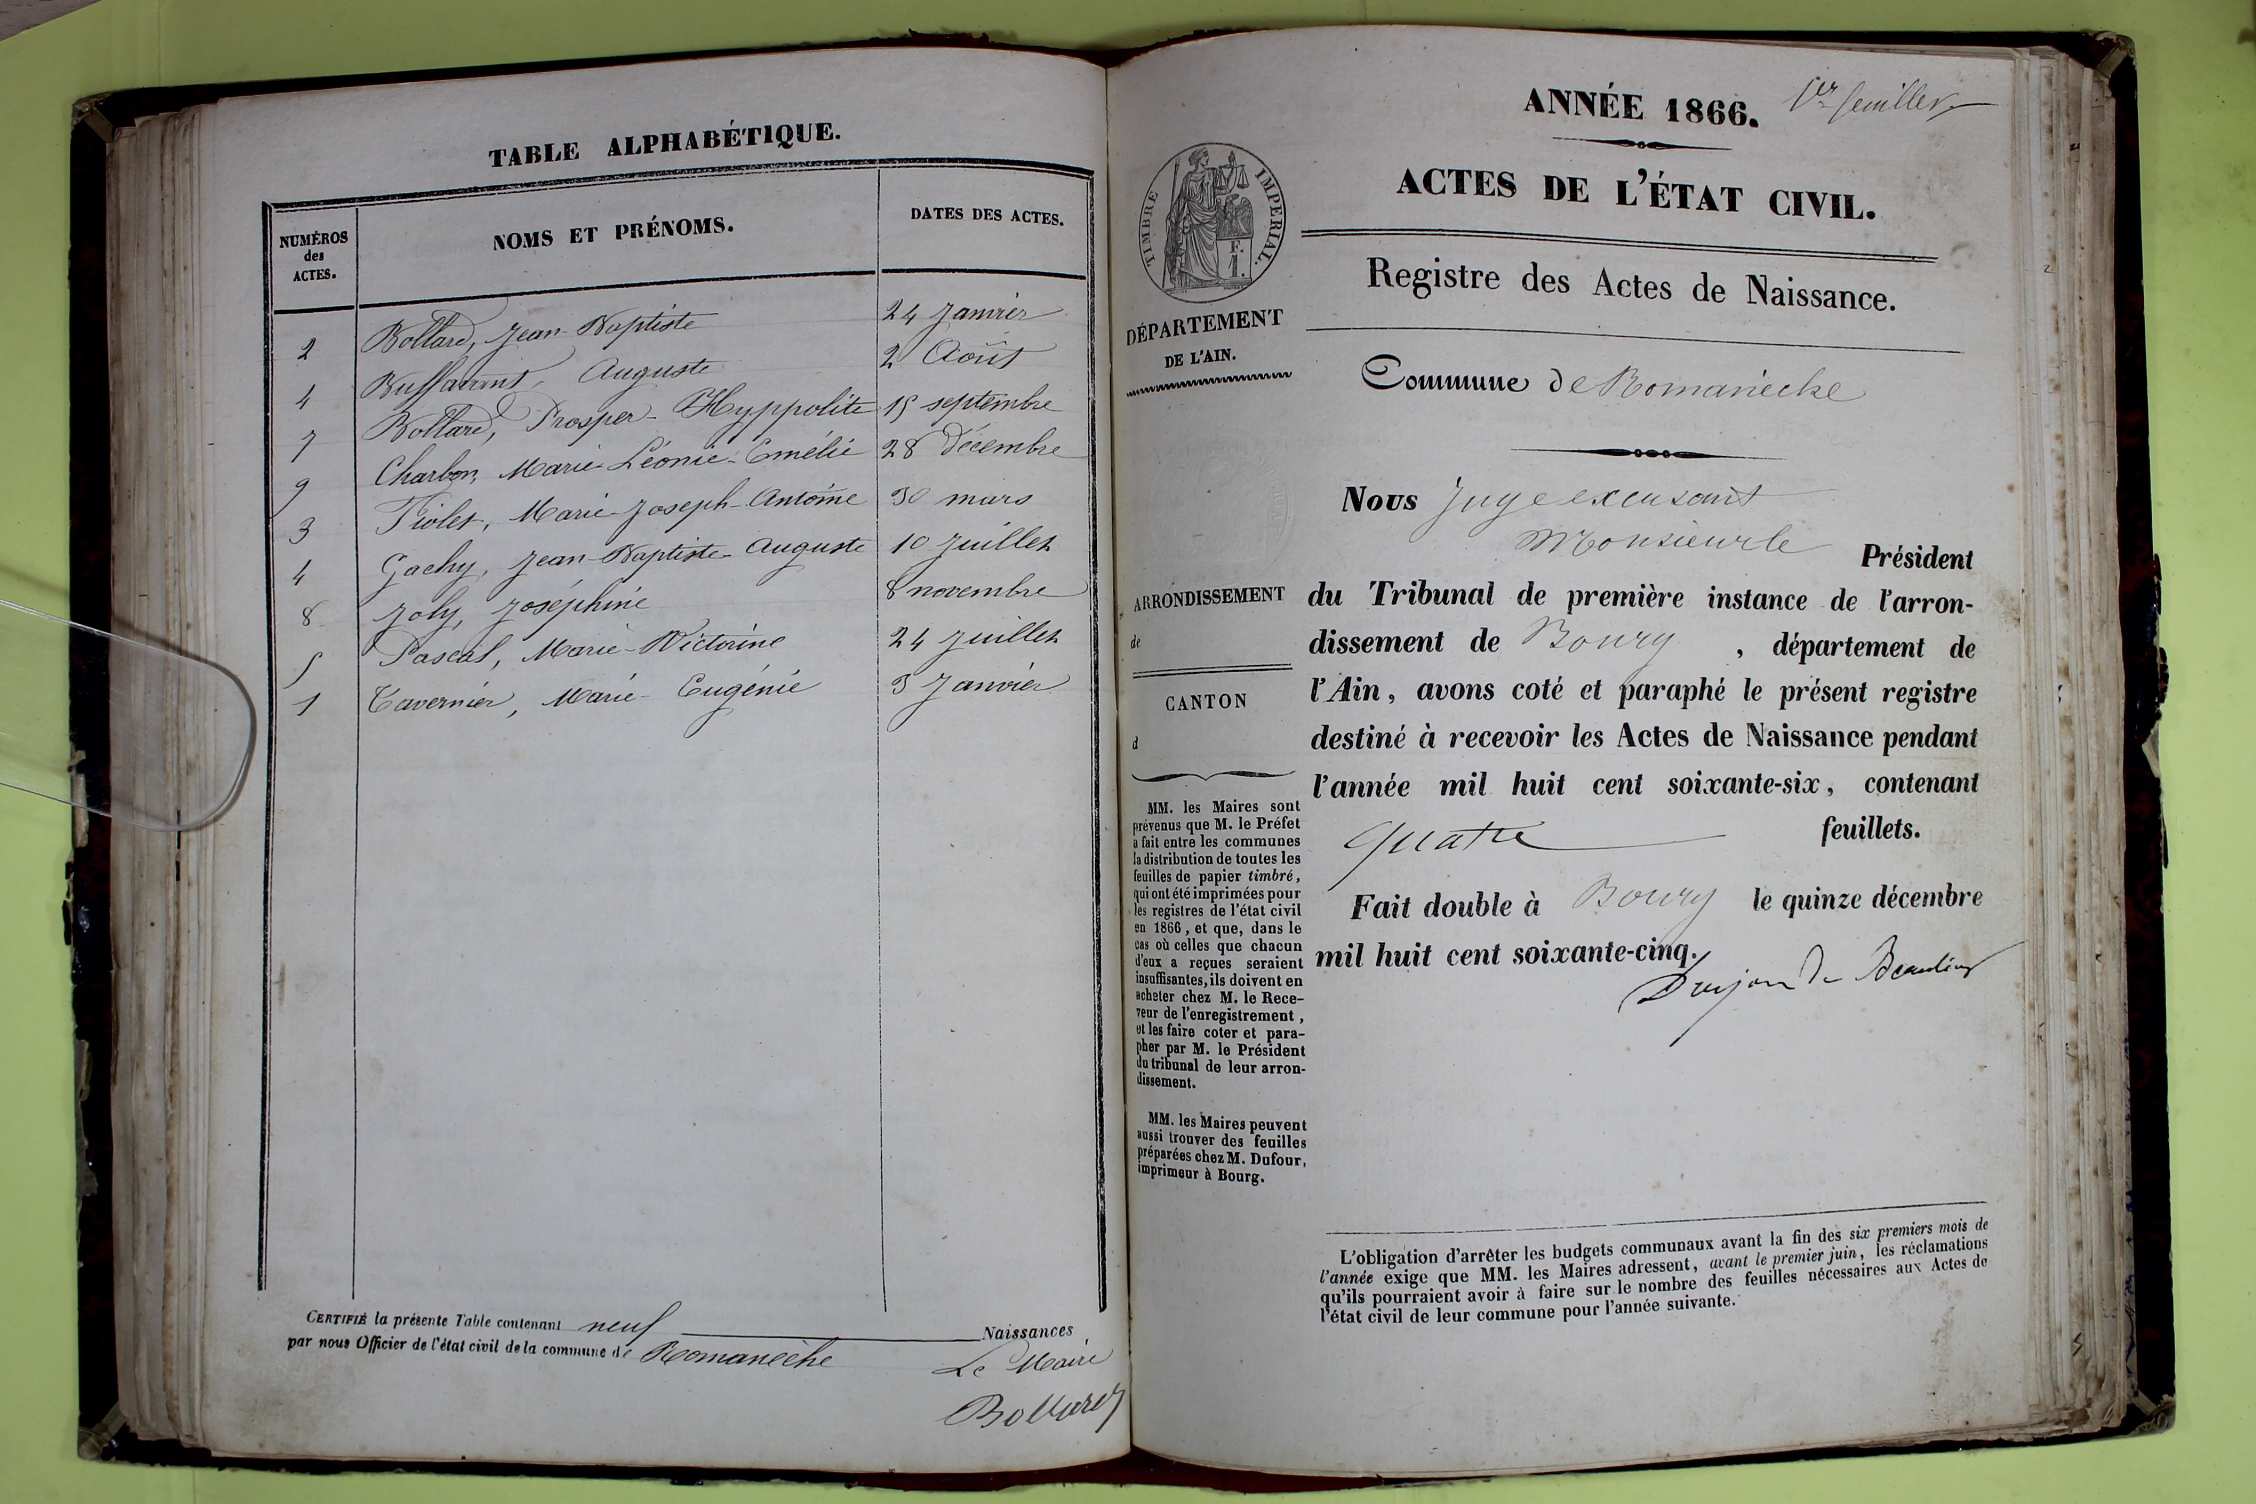 TABLE ALPHABÉTIQUE.
NUMÉROS des ACTES.
NOMS ET PRÉNOMS.
DATES DES ACTES.
2 Bollard, Jean-Baptiste 24 Janvier
4 Auguste 2 Août
7 Bollard, Prosper-Hyppolite 15 septembre
9 Charbon, Marie-Léonie-Emélie 28 Décembre
3 Fiolet, Marie-Joseph-Antoine 30 mars
4 Gachy, Jean-Baptiste-Auguste 10 Juillet
8 Joly, Joséphine 8 novembre
5 Pascal, Marie-Victorine 24 Juillet
1 Tavernier, Marie-Eugénie 3 Janvier
CERTIFIÉ la présente Table contenant neuf Naissances
par nous Officier de l'état civil de la commune de Romanèche
Le Maire
Bollard
ANNÉE 1866. 1er feuillet
ACTES DE L'ÉTAT CIVIL.
Registre des Actes de Naissance.
TIMBRE IMPERIAL.
F.
1.
DÉPARTEMENT
DE L'AIN.
Commune de Romanèche
Nous Juge excusant
Monsieur le Président
du Tribunal de première instance de l'arron-
dissement de Bourg, département de
l'Ain, avons coté et paraphé le présent registre
destiné à recevoir les Actes de Naissance pendant
l'année mil huit cent soixante-six, contenant
quatre feuillets.
Fait double à Bourg le quinze décembre
mil huit cent soixante-cinq.
ARRONDISSEMENT
de
CANTON
d
MM. les Maires sont
prévenus que M. le Préfet
a fait entre les communes
la distribution de toutes les
feuilles de papier timbré,
qui ont été imprimées pour
les registres de l'état civil
en 1866, et que, dans le
cas où celles que chacun
d'eux a reçues seraient
insuffisantes, ils doivent en
acheter chez M. le Rece-
veur de l'enregistrement,
et les faire coter et para-
pher par M. le Président
du tribunal de leur arron-
dissement.
MM. les Maires peuvent
aussi trouver des feuilles
préparées chez M. Dufour,
imprimeur à Bourg.
L'obligation d'arrêter les budgets communaux avant la fin des six premiers mois de
l'année exige que MM. les Maires adressent, avant le premier juin, les réclamations
qu'ils pourraient avoir à faire sur le nombre des feuilles nécessaires aux Actes de
l'état civil de leur commune pour l'année suivante.